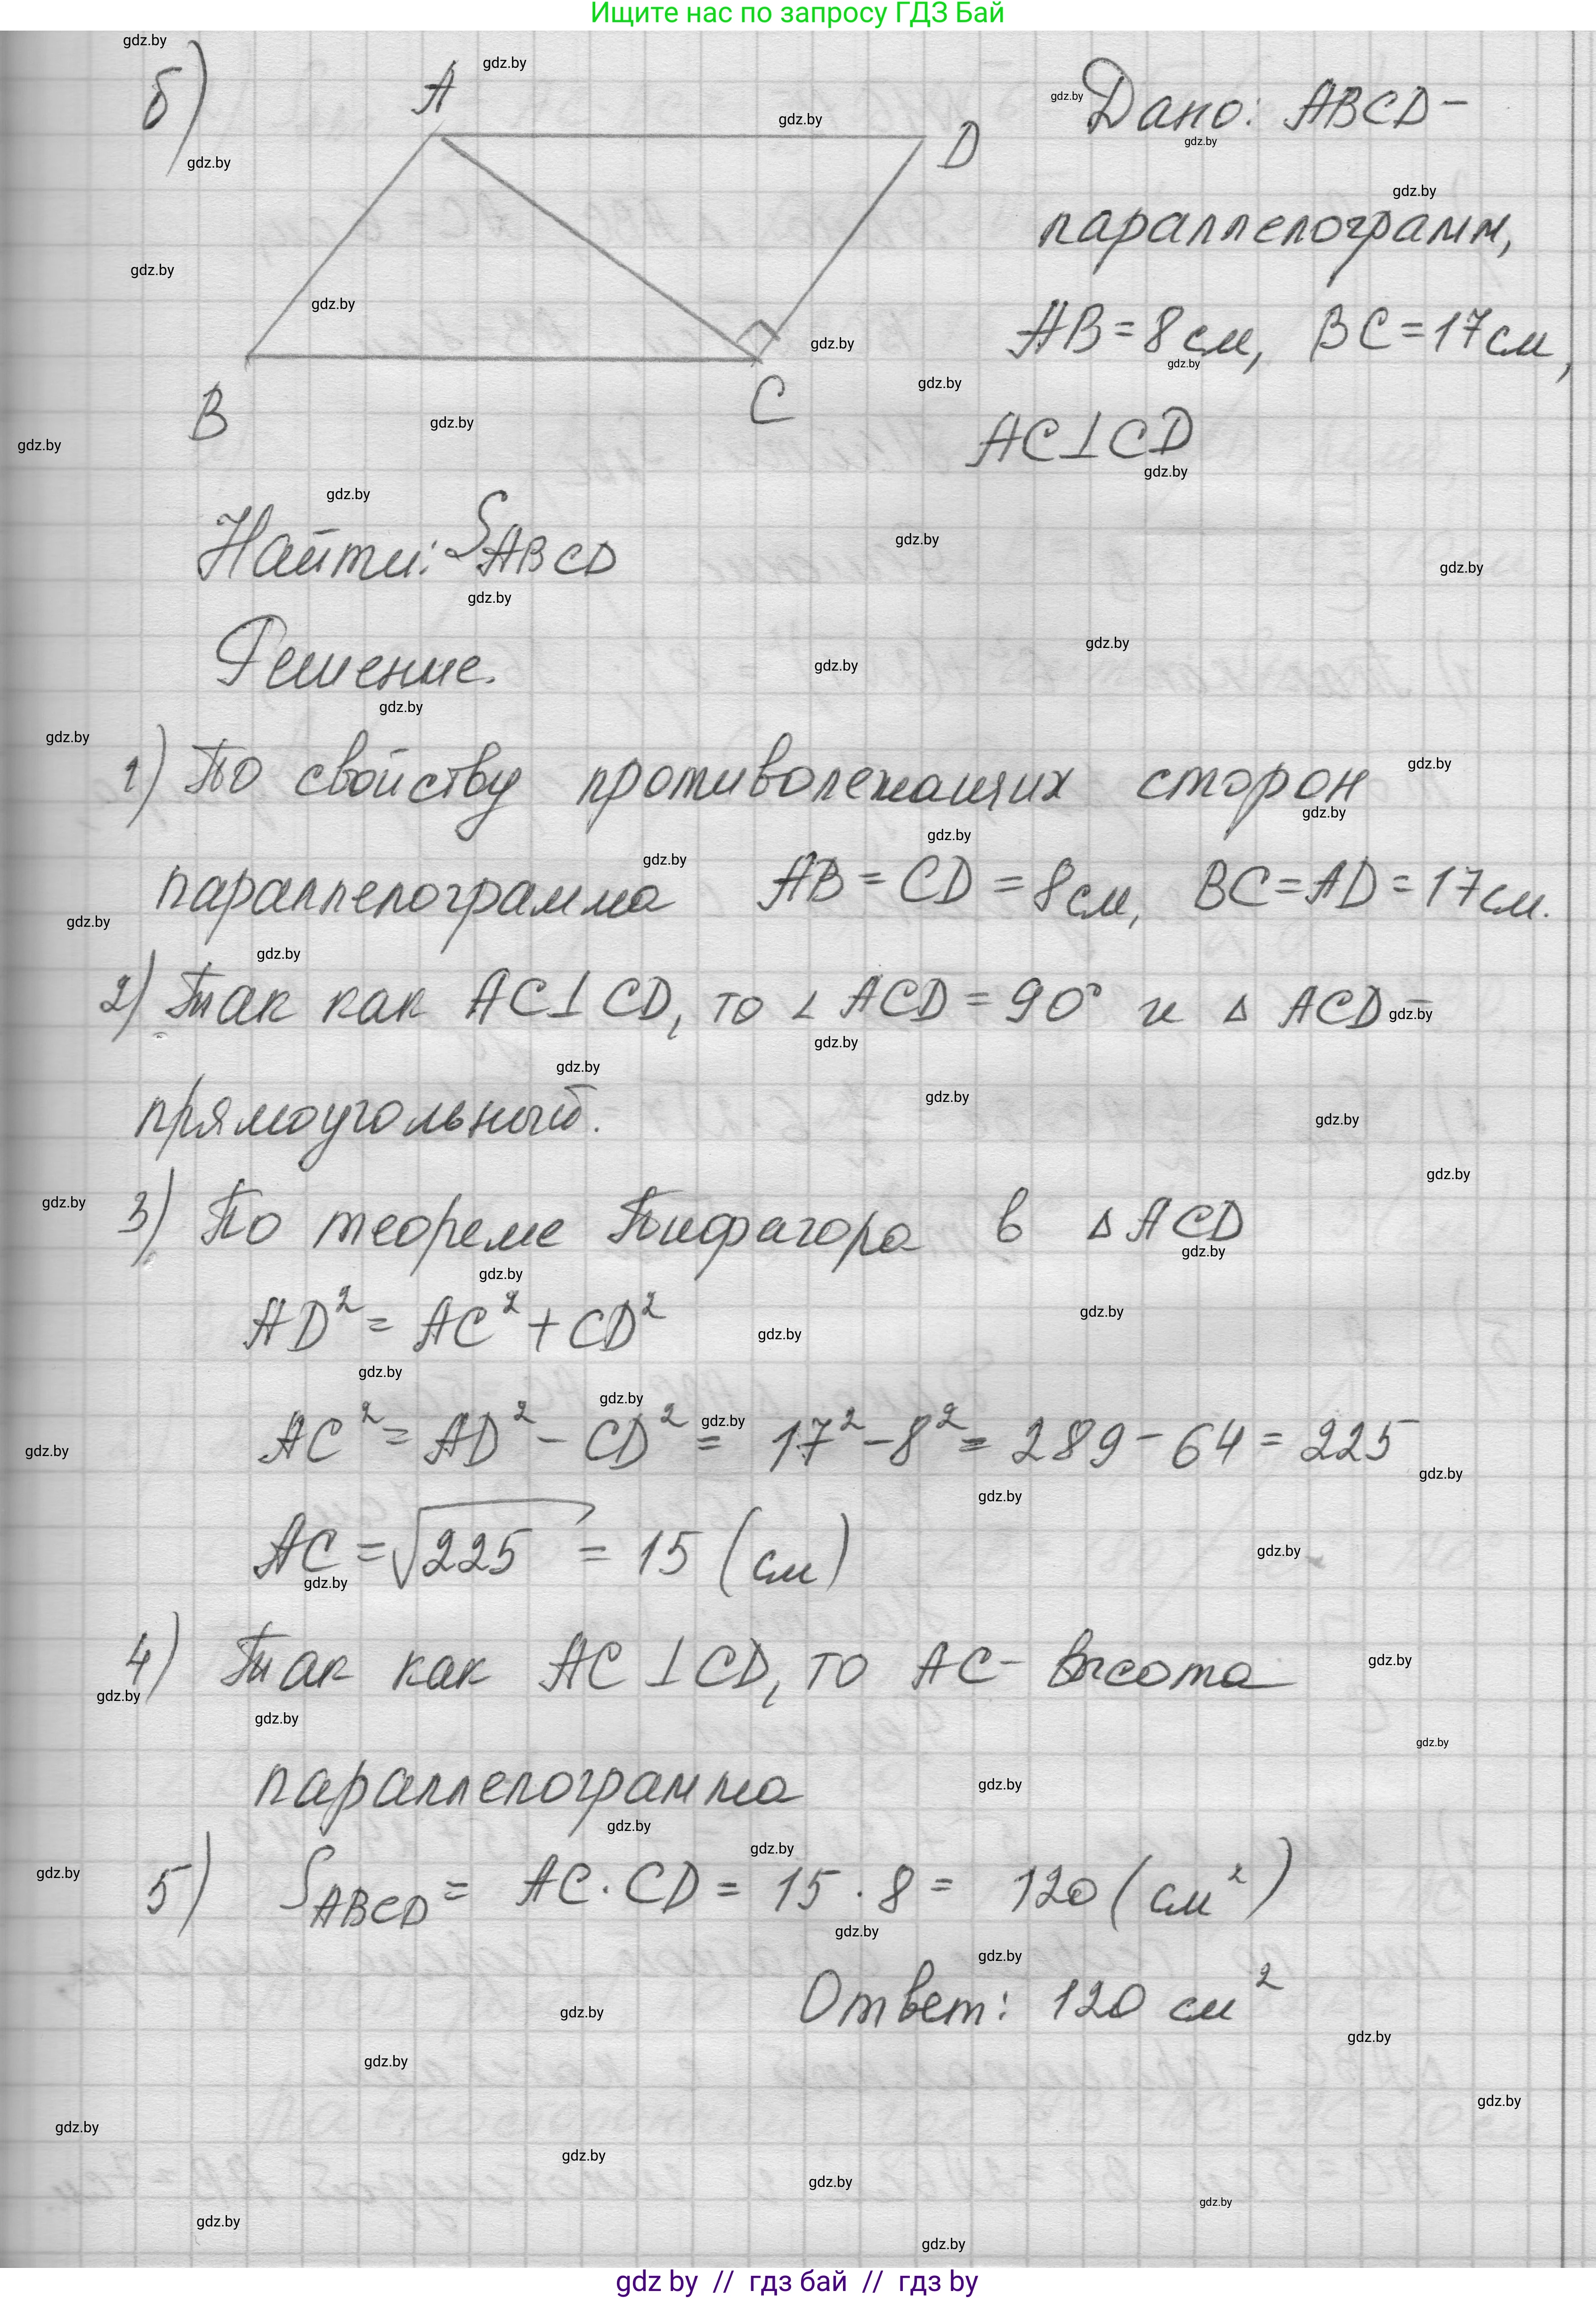 Ищите нас по запросу ГДЗ Бай
б)
A
D
B
C
Дано: ABCD –
параллелограмм,
AB = 8 см, BC = 17 см,
AC ⊥ CD
Найти: S ABCD
Решение.
1) По свойству противолежащих сторон
параллелограмма AB = CD = 8 см, BC = AD = 17 см.
2) Так как AC ⊥ CD, то ∠ ACD = 90° и Δ ACD –
прямоугольный.
3) По теореме Пифагора в Δ ACD
AD² = AC² + CD²
AC² = AD² – CD² = 17² – 8² = 289 – 64 = 225
AC = √225 = 15 (см)
4) Так как AC ⊥ CD, то AC – высота
параллелограмма
5) S ABCD = AC · CD = 15 · 8 = 120 (см²)
Ответ: 120 см²
gdz by // гдз бай // гдз by